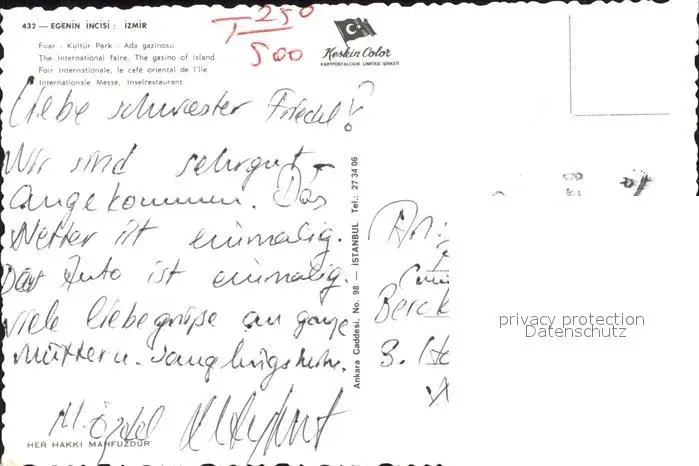 432 — EGENİN İNCİSİ : İZMİR
Fuar - Kültür Park - Ada gazinosu
The International faire, The gasino of island
Foir Internationale, le café oriental de l'île
Internationale Messe, Inselrestaurant
T 250
500
Keskin Color
KARTPOSTALCILIK LIMITED ŞİRKETİ
Liebe schwester Friedel!
Wir sind sehrgut
angekommen. Das
Wetter ist einmalig.
Das Auto ist einmalig.
viele liebegrüße an ganze
Mütter u.
M. Özdal
HER HAKKI MAHFUZDUR
Ankara Caddesi, No. 98 — İSTANBUL Tel.: 27 34 06
An:
Berck
3.
privacy protection
Datenschutz